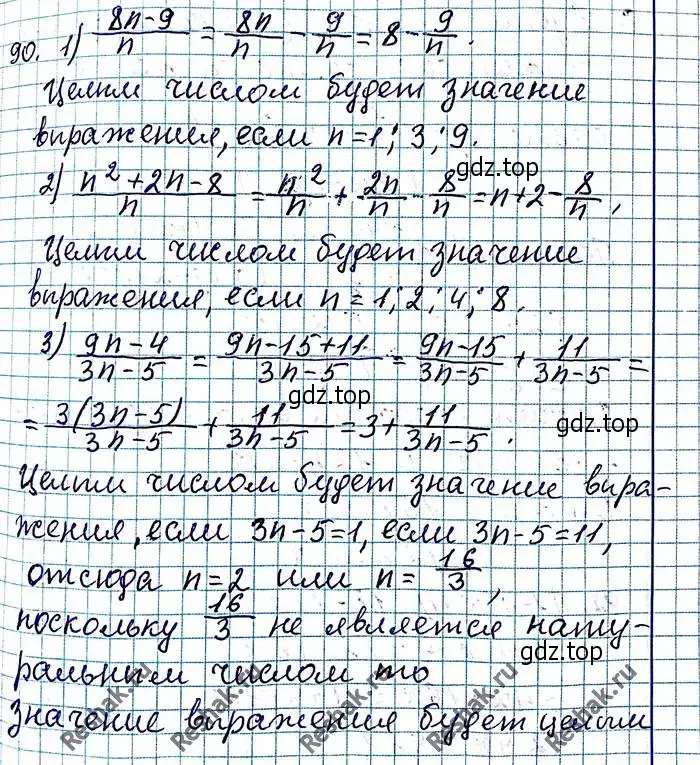 90. 1) (8n-9)/n = 8n/n - 9/n = 8 - 9/n.
Целым числом будет значение
выражения, если n=1; 3; 9.
gdz.top
2) (n²+2n-8)/n = n²/n + 2n/n - 8/n = n+2-8/n,
gdz.top
Целым числом будет значение
выражения, если n=1; 2; 4; 8.
gdz.top
3) (9n-4)/(3n-5) = (9n-15+11)/(3n-5) = (9n-15)/(3n-5) + 11/(3n-5) =
gdz.top
= 3(3n-5)/(3n-5) + 11/(3n-5) = 3 + 11/(3n-5).
gdz.top
Целым числом будет значение выра-
жения, если 3n-5=1, если 3n-5=11,
отсюда n=2 или n= 16/3,
gdz.top
поскольку 16/3 не является нату-
ральным числом то
gdz.top
значение выражения будет целым
Reshak.ru Reshak.ru Reshak.ru Reshak.ru